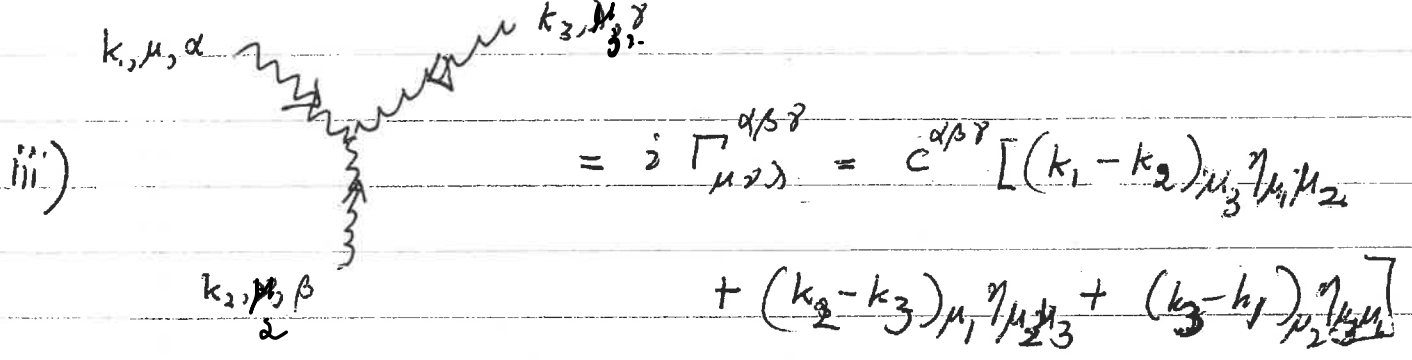 k₃, μ₃, γ
k₁, μ, α
iii)
= i Γ^{αβγ}_{μνλ} = C^{αβγ} [(k₁ - k₂)_{μ₃} η_{μ₁μ₂}
k₂, μ₂, β
+ (k₂ - k₃)_{μ₁} η_{μ₂μ₃} + (k₃ - k₁)_{μ₂} η_{μ₃μ₁}]